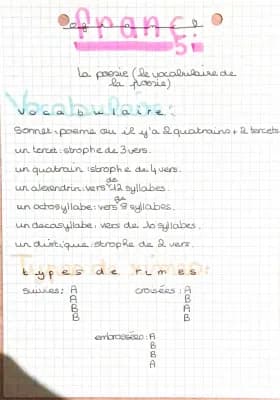 Franç.
5.
La poésie (le vocabulaire de
la poésie)
Vocabulaire:
Sonnet: poème où il y'a 2 quatrains + 2 tercets
un tercet: strophe de 3 vers.
un quatrain: strophe de 4 vers.
un alexendrin: vers de 12 syllabes.
un octosyllabe: vers de 8 syllabes.
un decasyllabe: vers de 10 syllabes.
un distique: strophe de 2 vers.
types de rimes:
suivies: A
A
B
B
croisées: A
B
A
B
embrassées: A
B
B
A